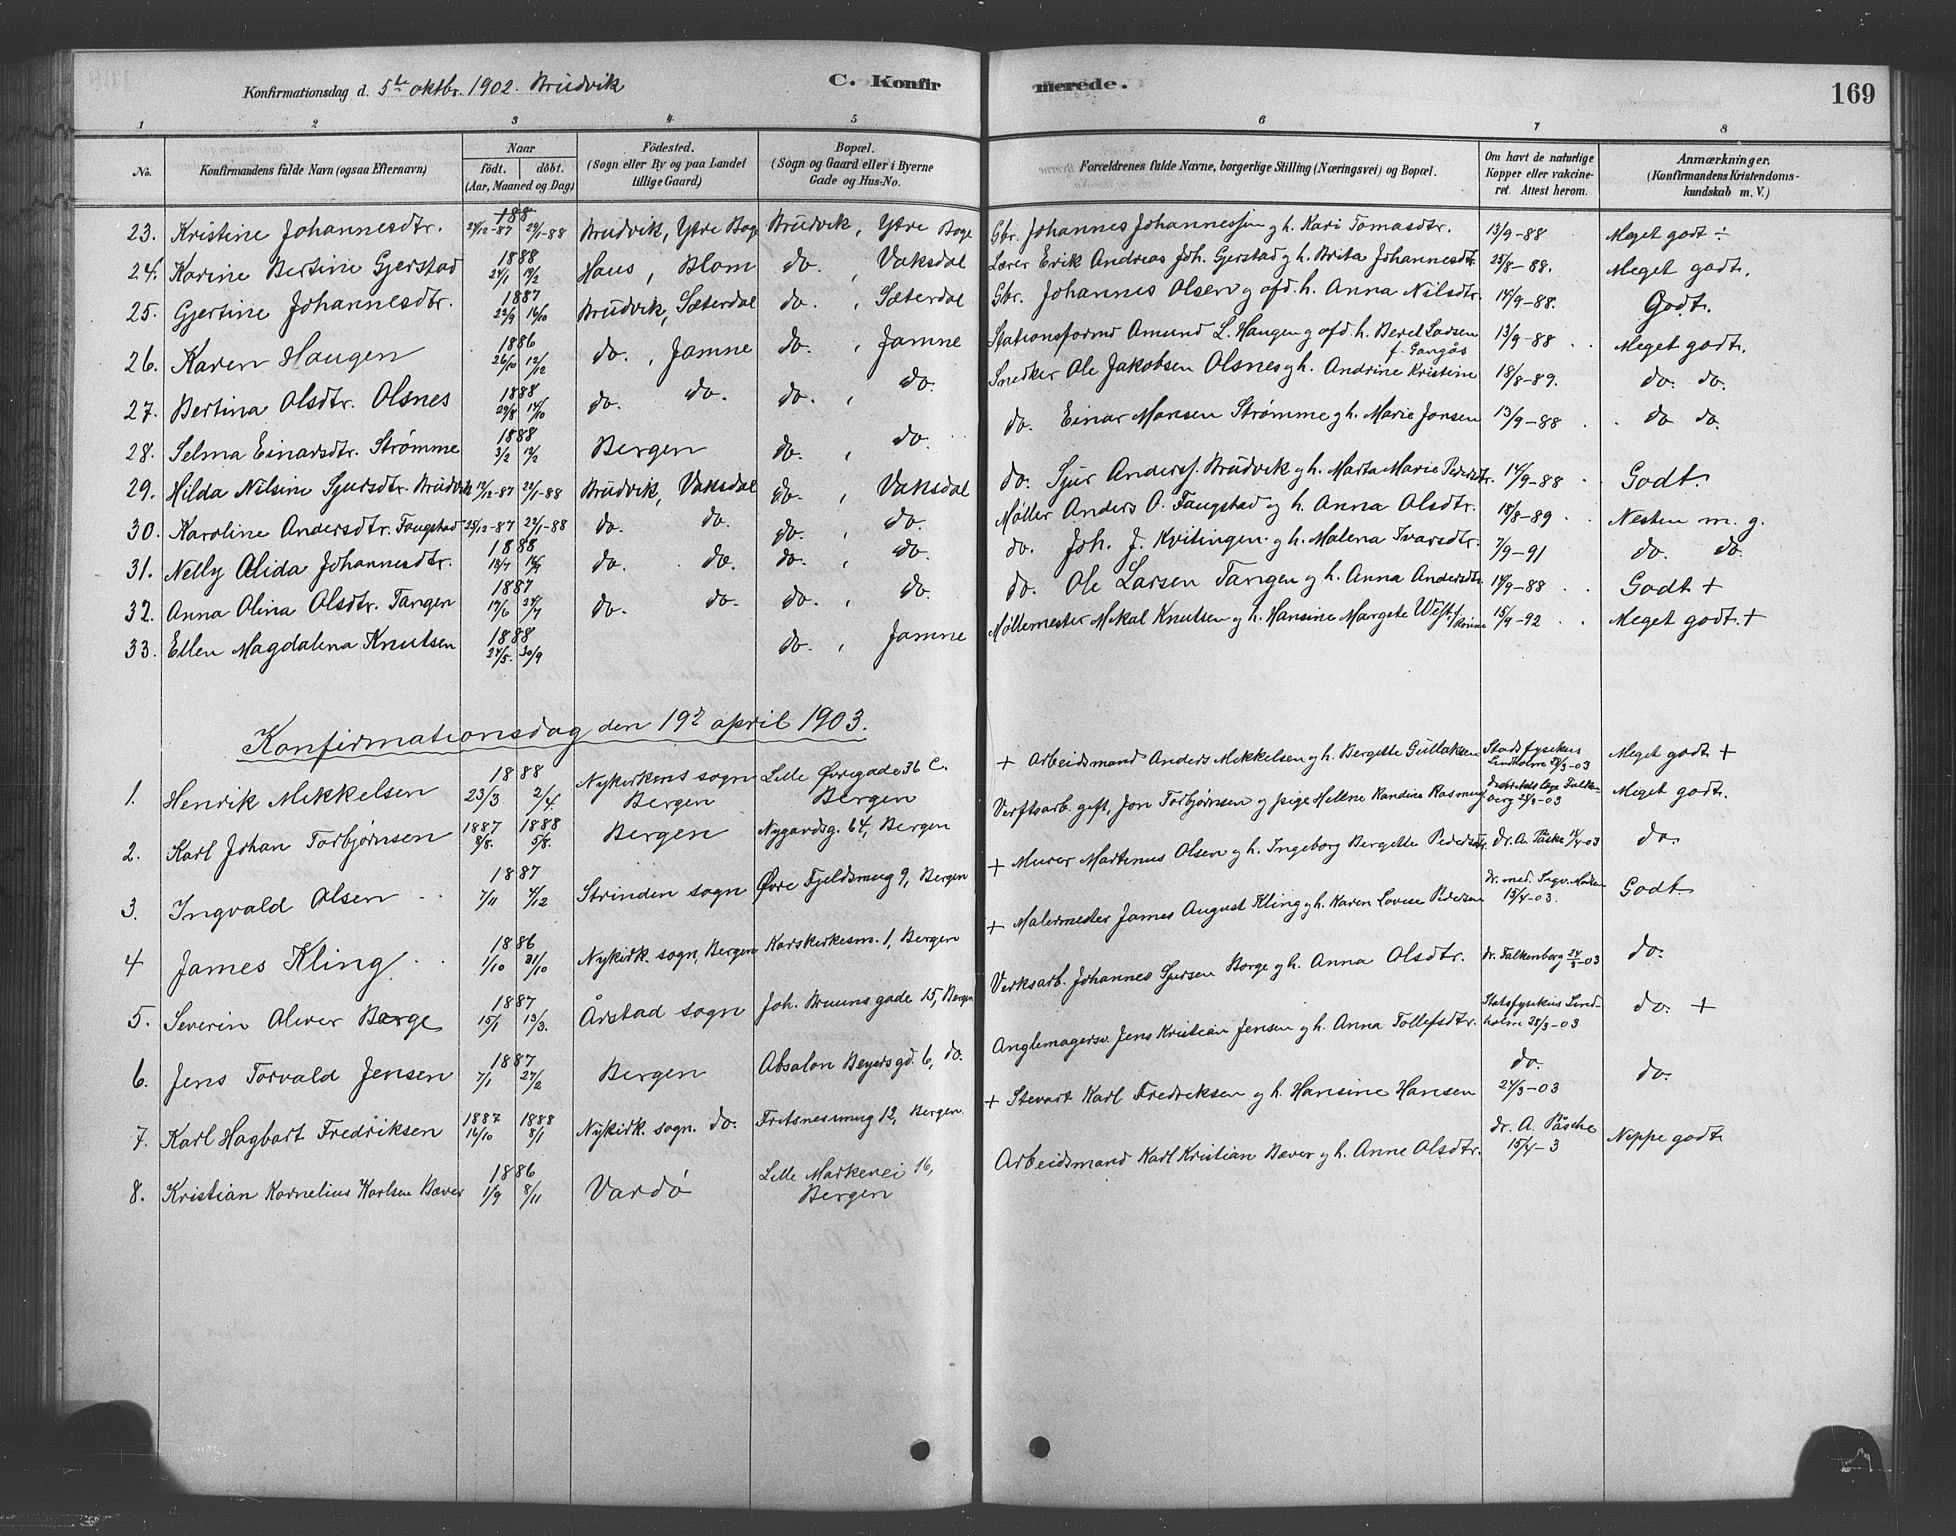 Konfirmationsdag d. 5te oktbr. 1902. Brudvik
C. Konfirmerede.
169
1 2 3 4 5 6 7 8
No. Konfirmandens fulde Navn (ogsaa Efternavn) Naar født. døbt. (Aar, Maaned og Dag) Fødested. (Sogn eller By og paa Landet tillige Gaard) Bopæl. (Sogn og Gaard eller i Byerne Gade og Hus-No. Forældrenes fulde Navne, borgerlige Stilling (Næringsvei) og Bopæl. Om havt de naturlige Kopper eller vakcineret. Attest herom. Anmærkninger. (Konfirmandens Kristendomskundskab m. V.)
23. Kristine Johannesdtr. 29/1-88 Brudvik, Ytre Boge Brudvik, Ytre Boge Gbr. Johannes Johannessen g h. Kari Tomasdtr. 13/9-88 Meget godt ÷
24. Karine Bertine Gjerstad 1888 24/1 19/2 Haus, Blom do. , Vaksdal Lærer Erik Andreas Joh. Gjerstad g h. Brita Johannesdtr. 25/8-88. Meget godt.
25. Gjertine Johannesdtr. 1887 22/9 16/10 Brudvik, Sæterdal do. , Sæterdal Gbr. Johannes Olsen g afd. h. Anna Nilsdtr. 14/9-88. Godt.
26. Karen Haugen 1886 26/10 12/12 do. , Jamne do. , Jamne Stationsformd Amund L. Haugen g afd h. Beret Larsen f. Gangås 13/9-88 Meget godt.
27. Bertina Olsdtr. Olsnes 1888 29/8 14/10 do. do. do. , do. Snedker Ole Jakobsen Olsnes g h. Andrine Kristine 18/8-89. do. do.
28. Selma Einarsdtr. Strømme 1888 3/2 Bergen do. , do. do. Einar Monsen Strømme g h. Marie Jonsen 13/9-88 do do.
29. Hilda Nilsine Sjursdtr. Brudvik 12/12-87 22/1-88 Brudvik, Vaksdal do. , Vaksdal do. Sjur Anderss. Brudvik g h. Marta Marie Pedersdtr. 14/9-88 Godt.
30. Karoline Andersdtr. Faugstad 25/12-87 22/1-88 do. do. do. , do. Møller Anders O. Faugstad g h. Anna Olsdtr. 18/8-89 Nesten m. g.
31. Nelly Olida Johannesdtr. 1888 do. do. do. , do. do. Joh. J. Kvitingen g h. Malena Ivarsdtr. 7/9-91 do. do.
32. Anna Olina Olsdtr. Tangen 1887 17/6 24/7 do. do. do. , do. do. Ole Larsen Tangen g h. Anna Andersdtr. 14/9-88 Godt +
33. Ellen Magdalena Knutsen 1888 24/5. 30/9 do. , Jamne Møllemester Mikal Knutsen g h. Hansine Margete 15/9-92 Meget godt. +
Konfirmationsdag den 19de april 1903.
1. Henrik Mekkelsen 1888 23/3 2/4. Nykirkens sogn Bergen Lille Øvregade 36 C. Bergen + Arbeidsmand Anders Mekkelsen g h. Bergette Gullaksen Stadsfysekus Lindholm 28/3-03 Meget godt +
2. Karl Johan Torbjørnsen 1887 8/8. 1888 5/8. Bergen Nygardsg. 64, Bergen Verftsarb. gift, Jon Torbjørnsen g pige Hellene Randine Rasmus 28/3-03 Meget godt.
3. Ingvald Olsen 1887 7/11 4/12 Strinden sogn Øvre Fjeldsmug 9, Bergen + Murer Martinus Olsen g h. Ingeborg Bergette Pedersdtr. dr. A. Påske 15/4-03 do.
4 James Kling 1886 1/10 31/10 Nykirk. sogn, Bergen Korskirkesm. 1, Bergen + Malermester James August Kling g h. Karen Lovise Pedersen dr. med. 15/4-03. Godt
5. Severin Oliver Borge 1887 15/1 13/3. Årstad sogn Joh. Bruuns gade 15, Bergen Verksarb. Johannes Sjursen Borge g h. Anna Olsdtr. dr. Falkenberg 24/3-03 do.
6. Jens Torvald Jensen 1887 7/1 27/2 Bergen Absalon Beyers gd. 6, do. Anglemagersv. Jens Kristian Jensen g h. Anna Tollefsdtr. Statsfysekus Lindholm 28/3-03 do. +
7. Karl Hagbart Fredriksen 1887 16/10 1888 8/1 Nykirk. sogn. do. Fritsnesmug 12, Bergen. + Stevart Karl Fredreksen g h. Hansine Hansen do. 24/3-03 do.
8. Kristian Kornelius Karlsen Bæver 1886 1/9 8/11 Vardø Lille Markevei 16, Bergen Arbeidsmand Karl Kristian Bæver g h. Anne Olsdtr. dr. A. Påsche 15/4-3 Neppe godt